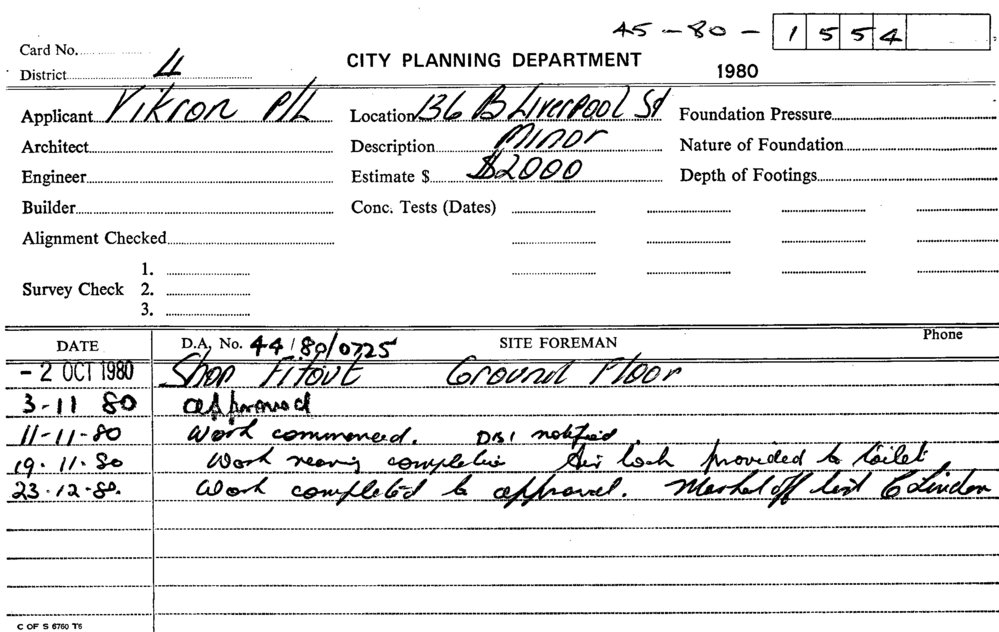 45-80-1554
Card No.
District 4
CITY PLANNING DEPARTMENT
1980
Applicant Vikron P/L Location 136 B Liverpool St Foundation Pressure
Architect Description Minor Nature of Foundation
Engineer Estimate $ $2000 Depth of Footings
Builder Conc. Tests (Dates)
Alignment Checked
1.
Survey Check 2.
3.
DATE D.A, No. 44/80/0725 SITE FOREMAN Phone
- 2 OCT 1980 Shop Fitout Ground Floor
3-11 80 approved
11-11-80 Work commenced. notified
19.11.80 Work nearing completion Air lock provided to toilet
23.12.80. Work completed to approval. Marked off
C OF S 6760 T6